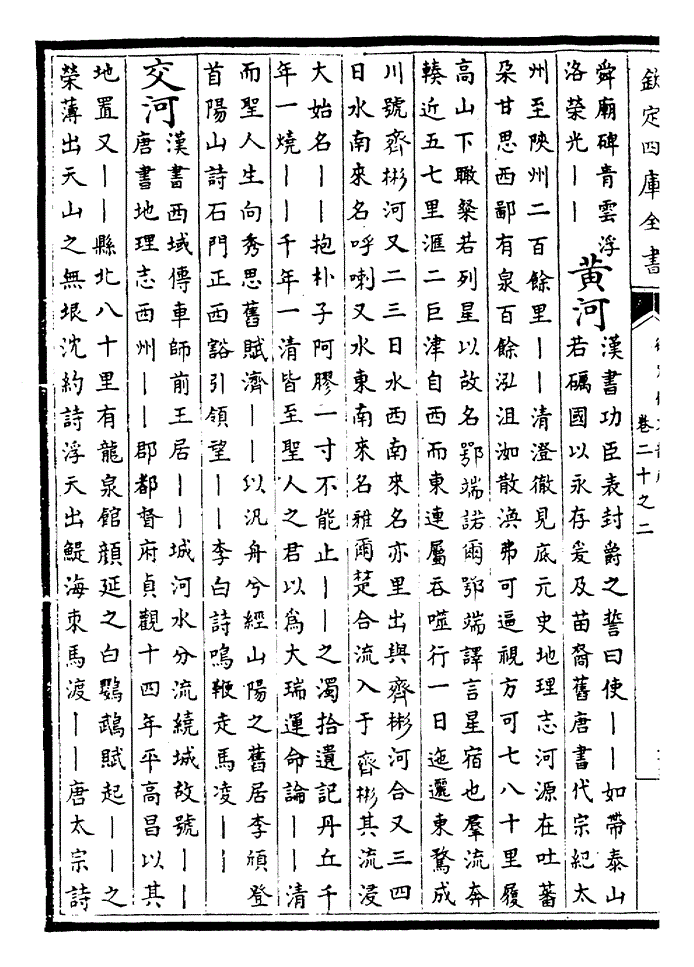 欽定四庫全書
卷二十之二
舜廟碑青雲浮
洛榮光丨丨
黃河
漢書功臣表封爵之誓曰使丨丨如帶泰山
若礪國以永存爰及苗裔舊唐書代宗紀太
州至陝州二百餘里丨丨清澄徹見底元史地理志河源在吐蕃
朶甘思西鄙有泉百餘泓沮洳散渙弗可逼視方可七八十里履
高山下瞰粲若列星以故名鄂端諾爾鄂端譯言星宿也羣流奔
輳近五七里滙二巨津自西而東連屬吞噬行一日迤邐東騖成
川號齊彬河又二三日水西南來名亦里出與齊彬河合又三四
日水南來名呼喇又水東南來名雅爾楚合流入于齊彬其流浸
大始名丨丨抱朴子阿膠一寸不能止丨丨之濁拾遺記丹丘千
年一燒丨丨千年一清皆至聖人之君以為大瑞運命論丨丨清
而聖人生向秀思舊賦濟丨丨以汎舟兮經山陽之舊居李頎登
首陽山詩石門正西豁引領望丨丨李白詩鳴鞭走馬凌丨丨
交河
漢書西域傳車師前王居丨丨城河水分流繞城故號丨丨
唐書地理志西州丨丨郡都督府貞觀十四年平高昌以其
地置又丨丨縣北八十里有龍泉館顔延之白鸚鵡賦起丨丨之
榮薄出天山之無垠沈約詩浮天出鯷海朿馬渡丨丨唐太宗詩